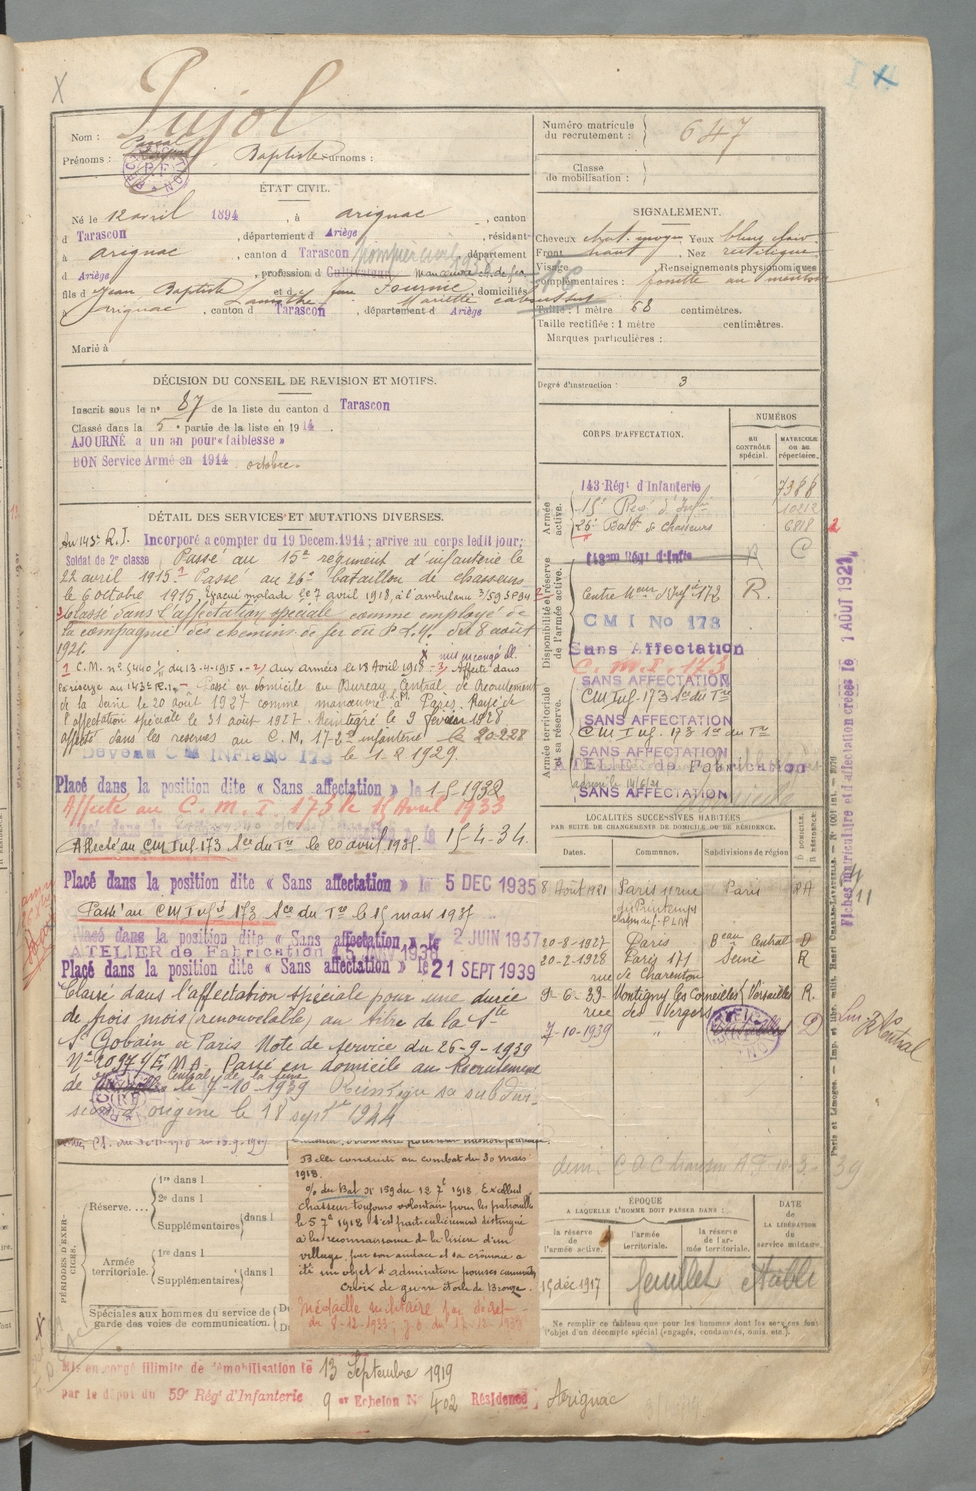 Pujol
Nom :
Prénoms : Baptiste Surnoms :
ÉTAT CIVIL.
Né le 12 avril 1894, à Arignac, canton
d Tarascon, département d Ariège, résidant
à Arignac, canton d Tarascon, département
d Ariège, profession d Cultivateur
fils d Jean Baptiste et d feue Fournié, domiciliés
Lamothe Mariette
à Arignac, canton d Tarascon, département d Ariège
Marié à
DÉCISION DU CONSEIL DE REVISION ET MOTIFS.
Inscrit sous le n° 87 de la liste du canton d Tarascon
Classé dans la 5e partie de la liste en 1914.
AJOURNÉ à un an pour « faiblesse »
BON Service Armé en 1914 octobre.
DÉTAIL DES SERVICES ET MUTATIONS DIVERSES.
Au 143e R.I. Incorporé à compter du 19 Décem. 1914 ; arrivé au corps ledit jour ;
Soldat de 2e classe Passé au 15e régiment d'infanterie le
22 avril 1915. Passé au 26e bataillon de chasseurs
le 6 octobre 1915, Evacué malade le 7 avril 1918, à l'ambulance 3/59 SP 94
Classé dans l'affectation spéciale comme employé de
la compagnie des chemins de fer du P.L.M. du 8 août
1921.
1 C.M. n° 5440 1/11 du 13-4-1915. - 2) aux armées le 18 Avril 1918 - 3) Affecté dans
la réserve au 143e R.I. - Passé en domicile au Bureau Central de Recrutement
de la Seine le 20 août 1927 comme manœuvre à Paris. Rayé de
l'affectation spéciale le 31 août 1927. Réintégré le 9 février 1928
affecté dans les réserves au C.M. 17-2e infanterie le 20-2-28
Devenu C M INFie No 173 le 1.2.1929.
Placé dans la position dite « Sans affectation » le 1-5 1932
Affecté au C. M. I. 173 le 15 Avril 1933
15-4-34.
Affecté au CM Inf 173 1ce du Tre le 20 avril 1935.
Placé dans la position dite « Sans affectation » le 5 DEC 1935
Passé au CM Infie 173 1ce du Tre le 15 mars 1937
Placé dans la position dite « Sans affectation » le 2 JUIN 1937
ATELIER de Fabrication
Placé dans la position dite « Sans affectation » le 21 SEPT 1939
Classé dans l'affectation spéciale pour une durée
de trois mois (renouvelable) au titre de la Sté
St Gobain à Paris Note de service du 26-9-1939
N° 2097 9/E.M.A. Passé en domicile au Recrutement
de Central de la Seine le 7-10-1939 Réintégré sa subdivi-
sion d'origine le 18 septbre 1944
Belle conduite au combat du 30 mars
1918.
O/ du Bat n° 159 du 12 7e 1918. Excellent
chasseur toujours volontaire pour les patrouilles
le 5 7e 1918 s'est particulièrement distingué
à la reconnaissance de la lisière d'un
village, par son audace et sa crânerie a
été un objet d'admiration pour ses camarades
Croix de guerre étoile de Bronze.
Médaille militaire par décret
du 9-12-1933, J.O. du 17-12-1933
PÉRIODES D'EXERCICES.
Réserve. ....
1re dans l
2e dans l
Supplémentaires dans l
Armée territoriale.
1re dans l
Supplémentaires dans l
Spéciales aux hommes du service de
garde des voies de communication.
Mis en congé illimité de démobilisation le 13 Septembre 1919
par le dépôt du 59e Régt d'Infanterie
9 me Echelon No 402 Résidence Arignac
Numéro matricule
du recrutement : 647
Classe
de mobilisation :
SIGNALEMENT.
Cheveux chat. moyen Yeux bleu clair
Front haut, Nez rectiligne
Visage, Renseignements physionomiques
complémentaires : fossette au menton
Taille : 1 mètre 68 centimètres.
Taille rectifiée : 1 mètre centimètres.
Marques particulières :
Degré d'instruction : 3
CORPS D'AFFECTATION.
NUMÉROS
AU CONTRÔLE spécial.
MATRICULE OU AU répertoire.
Armée active.
143 Régt d'Infanterie 7388
15e Rég. d'Infie 10212
26e Batn de Chasseurs 6818
Disponibilité et réserve de l'armée active.
143me Régt d'Infie R C
Centre Mobr d'Infie 172 R.
C M I No 173
Sans Affectation
C. M. I. 173
SANS AFFECTATION
Armée territoriale et sa réserve.
CM Inf. 173 1ce du Tre
SANS AFFECTATION
CM Inf. 173 1ce du Tre
SANS AFFECTATION
ATELIER de Fabrication
SANS AFFECTATION
LOCALITÉS SUCCESSIVES HABITÉES
PAR SUITE DE CHANGEMENTS DE DOMICILE OU DE RÉSIDENCE.
Dates. Communes. Subdivisions de région. D DOMICILE. R RÉSIDENCE
8 Août 1921 Paris rue du Printemps Paris RA
20-8-1927 Paris Beau Central D
20-2-1928 Paris 171 rue de Charenton Seine R
9-6-33 Montigny les Cormeilles rue des Vergers Versailles R.
7-10-1939 " D
ÉPOQUE
A LAQUELLE L'HOMME DOIT PASSER DANS :
la réserve de l'armée active.
l'armée territoriale.
la réserve de l'armée territoriale.
DATE de LA LIBÉRATION du service militaire.
15 déc 1917 feuillet établi
Ne remplir ce tableau que pour les hommes dont les services font
l'objet d'un décompte spécial (engagés, condamnés, omis, etc.).
Fiches matriculaire et d'affectation créées le 1 AOUT 1921